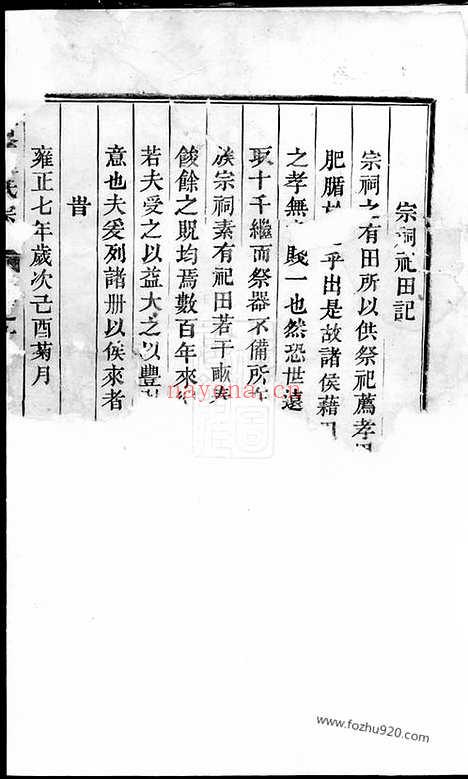 宗祠祀田記
宗祠之有田所以供祭祀薦孝
肥腯於 乎出是故諸侯藉田
之孝無 賤一也然恐世遠
取十千繼而祭器不備所
族宗祠素有祀田若干畝
餕餘之既均焉數百年來
若夫受之以益大之以豐
意也夫爰列諸册以俟來者
旹
雍正七年歲次己酉菊月
氏宗
nayona.cn
www.fozhu920.com